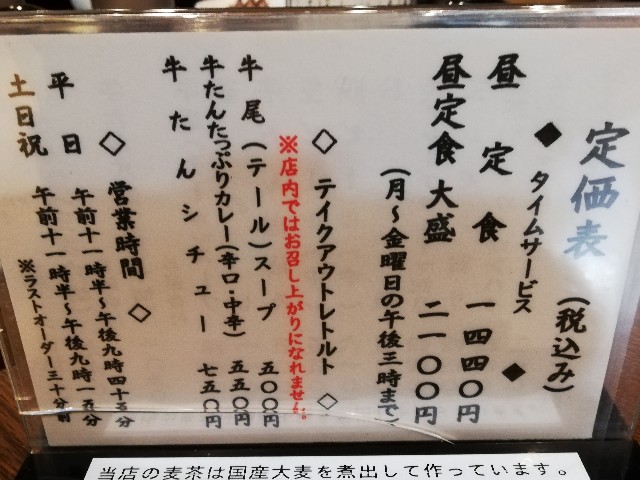 定価表 (税込み)
◆ タイムサービス ◆
昼定食 一四四〇円
昼定食大盛 二一〇〇円
(月〜金曜日の午後三時まで)
◇ テイクアウトレトルト ◇
※店内ではお召し上がりになれません。
牛尾(テール)スープ 五〇〇円
牛たんたっぷりカレー(辛口・中辛) 五五〇円
牛たんシチュー 七五〇円
◇ 営業時間 ◇
平日 午前十一時半〜午後九時四十五分
土日祝 午前十一時半〜午後九時一五分
※ラストオーダー三十分前
当店の麦茶は国産大麦を煮出して作っています。